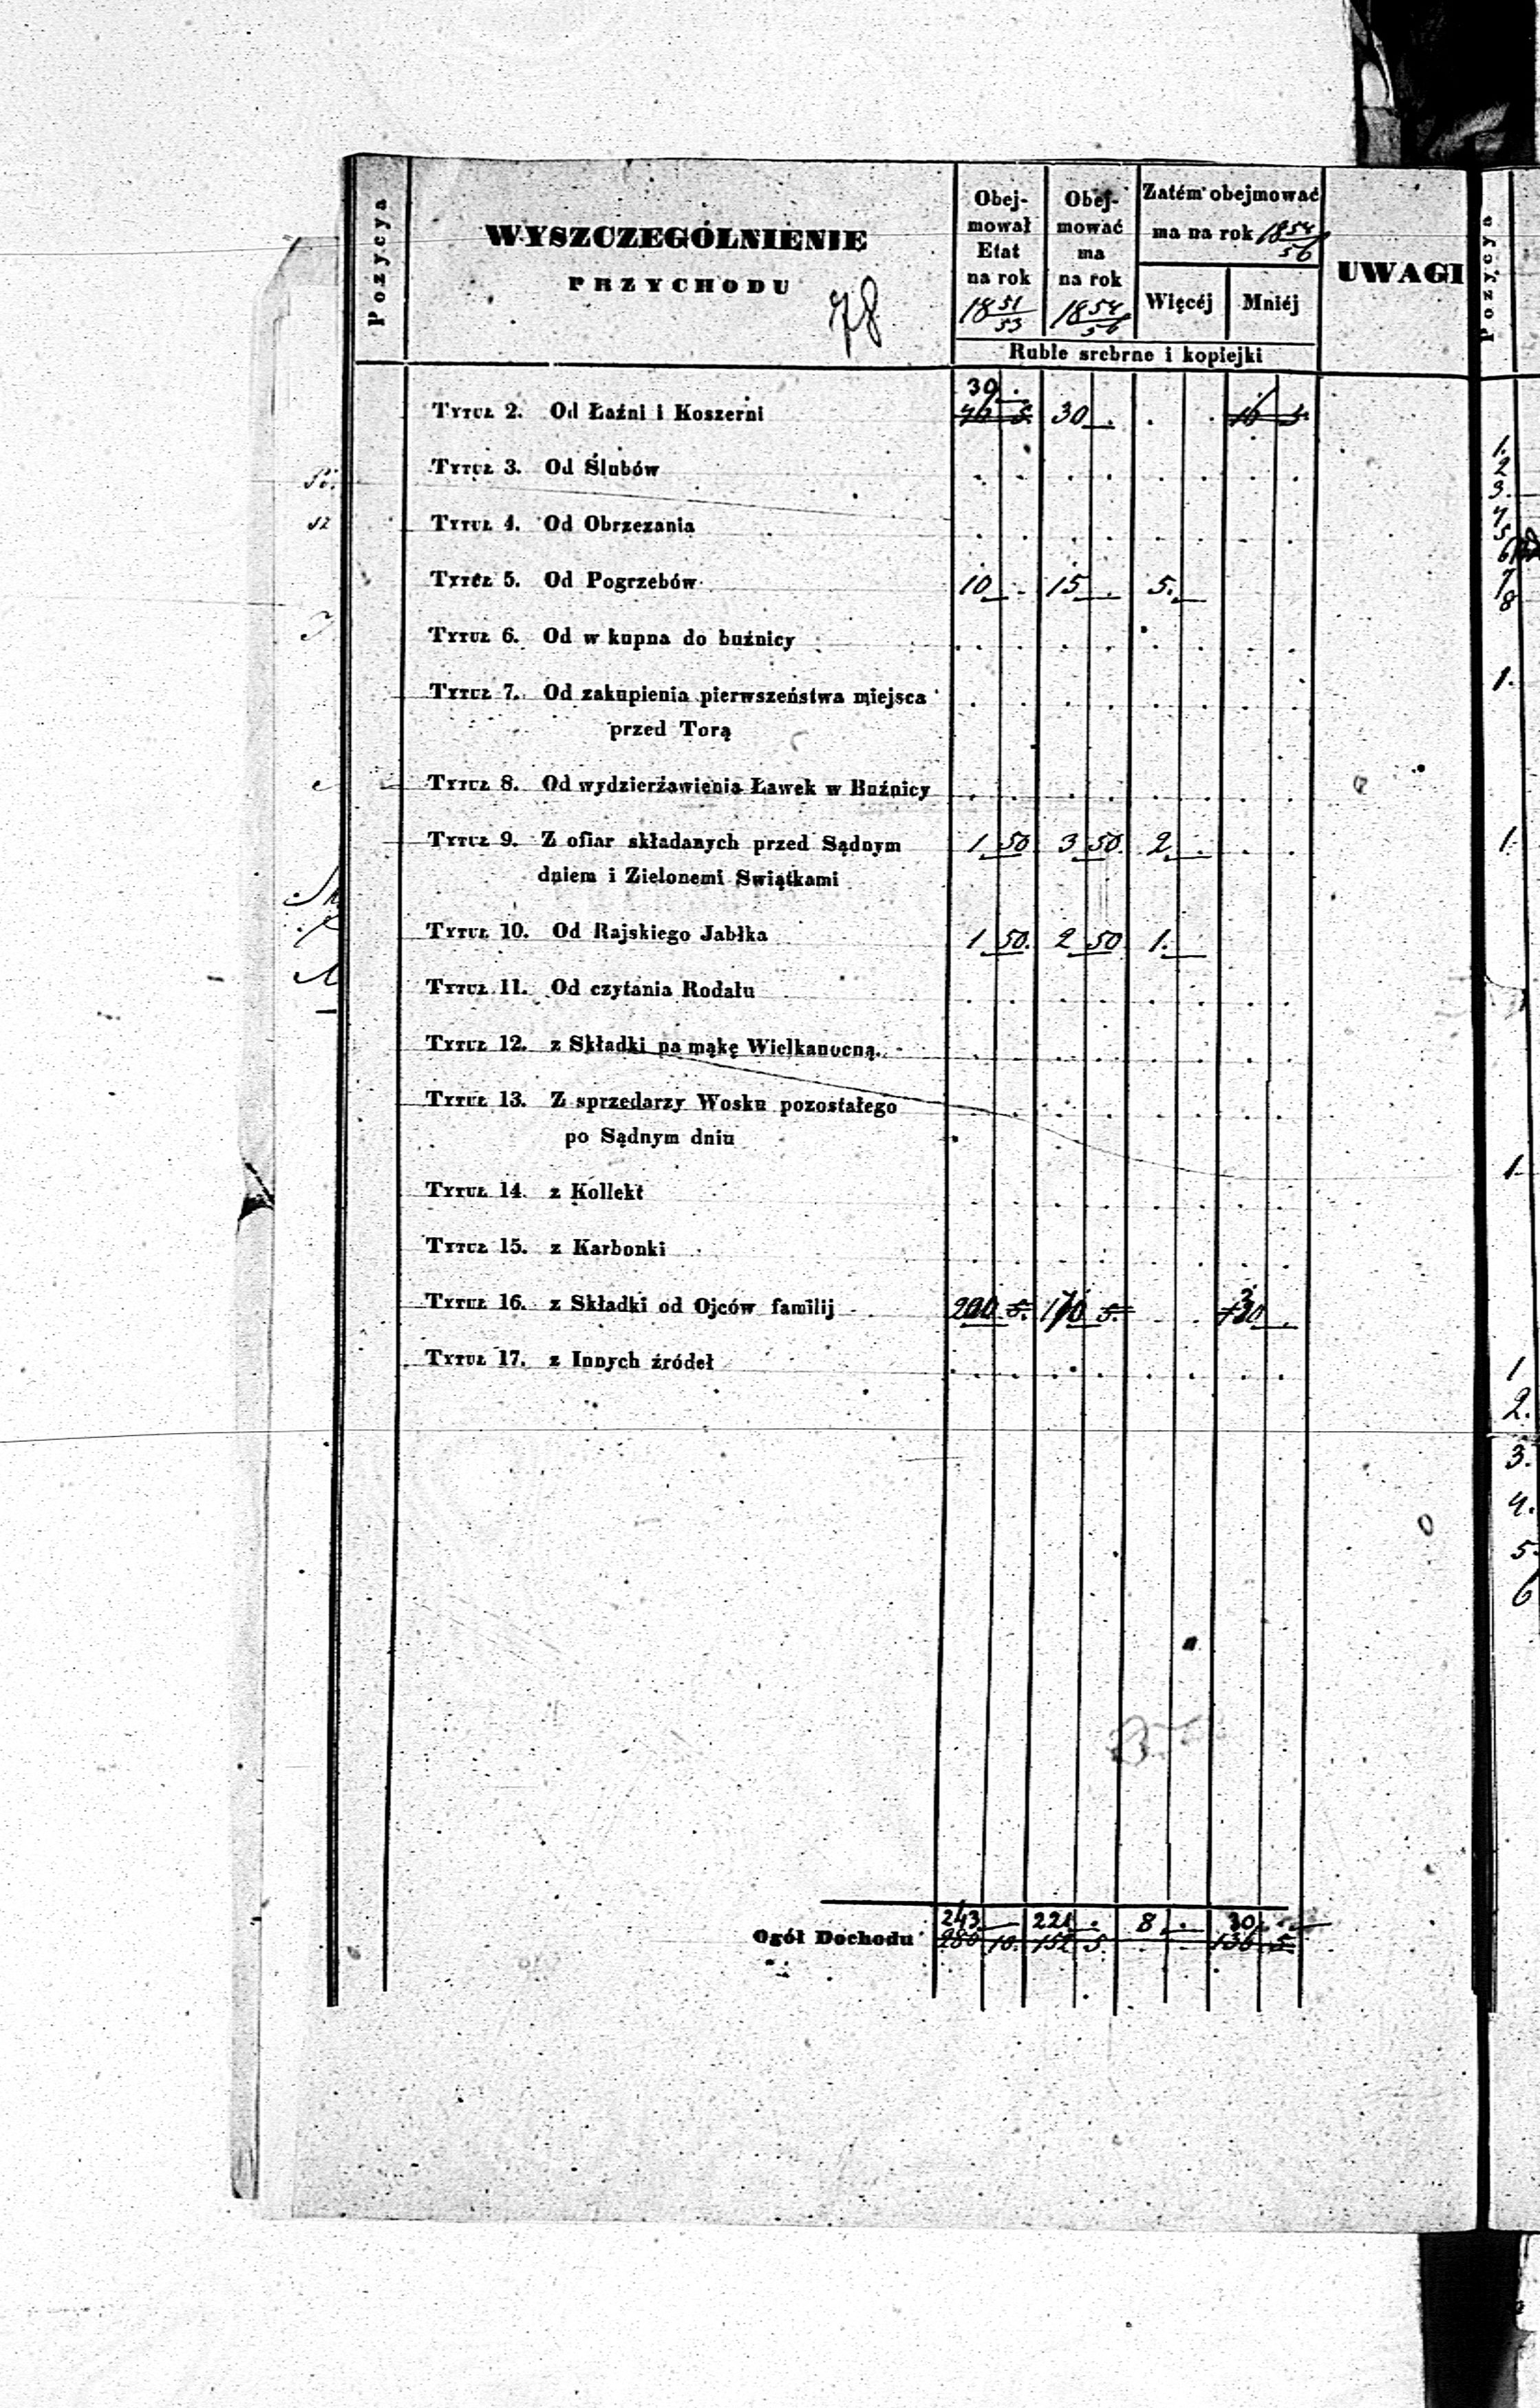 Pozycya
WYSZCZEGÓLNIENIE
PRZYCHODU
78
Obej-
mował
Etat
na rok
18 51/53
Obej-
mować
ma
na rok
18 54/56
Zatém obejmować
ma na rok 18 54/56
Więcéj Mniéj
UWAGI
Ruble srebrne i kopiejki
30 .
Tytuł 2. Od Łaźni i Koszerni 40 5 30 . . . 10 5
Tytuł 3. Od Ślubów
Tytuł 4. Od Obrzezania
Tytuł 5. Od Pogrzebów 10 . 15 . 5.
Tytuł 6. Od w kupna do buźnicy
Tytuł 7. Od zakupienia pierwszeństwa miejsca
przed Torą
Tytuł 8. Od wydzierżawienia Ławek w Buźnicy
Tytuł 9. Z ofiar składanych przed Sądnym 1 50 3 50. 2 .
dniem i Zielonemi Swiątkami
Tytuł 10. Od Rajskiego Jabłka 1 50. 2 50 1.
Tytuł 11. Od czytania Rodału
Tytuł 12. z Składki na mąkę Wielkanocną.
Tytuł 13. Z sprzedarzy Wosku pozostałego
po Sądnym dniu
Tytuł 14. z Kollekt
Tytuł 15. z Karbonki
Tytuł 16. z Składki od Ojców familij 200 5. 170 5. 30 .
Tytuł 17. z Innych źródeł
243 221 . 8 . 30 .
Ogół Dochodu 10. 152 5. 136 5
Pozycya
1.
2
3.
4
5
6
7
8
1.
1.
1.
1
2.
3.
4.
5.
6